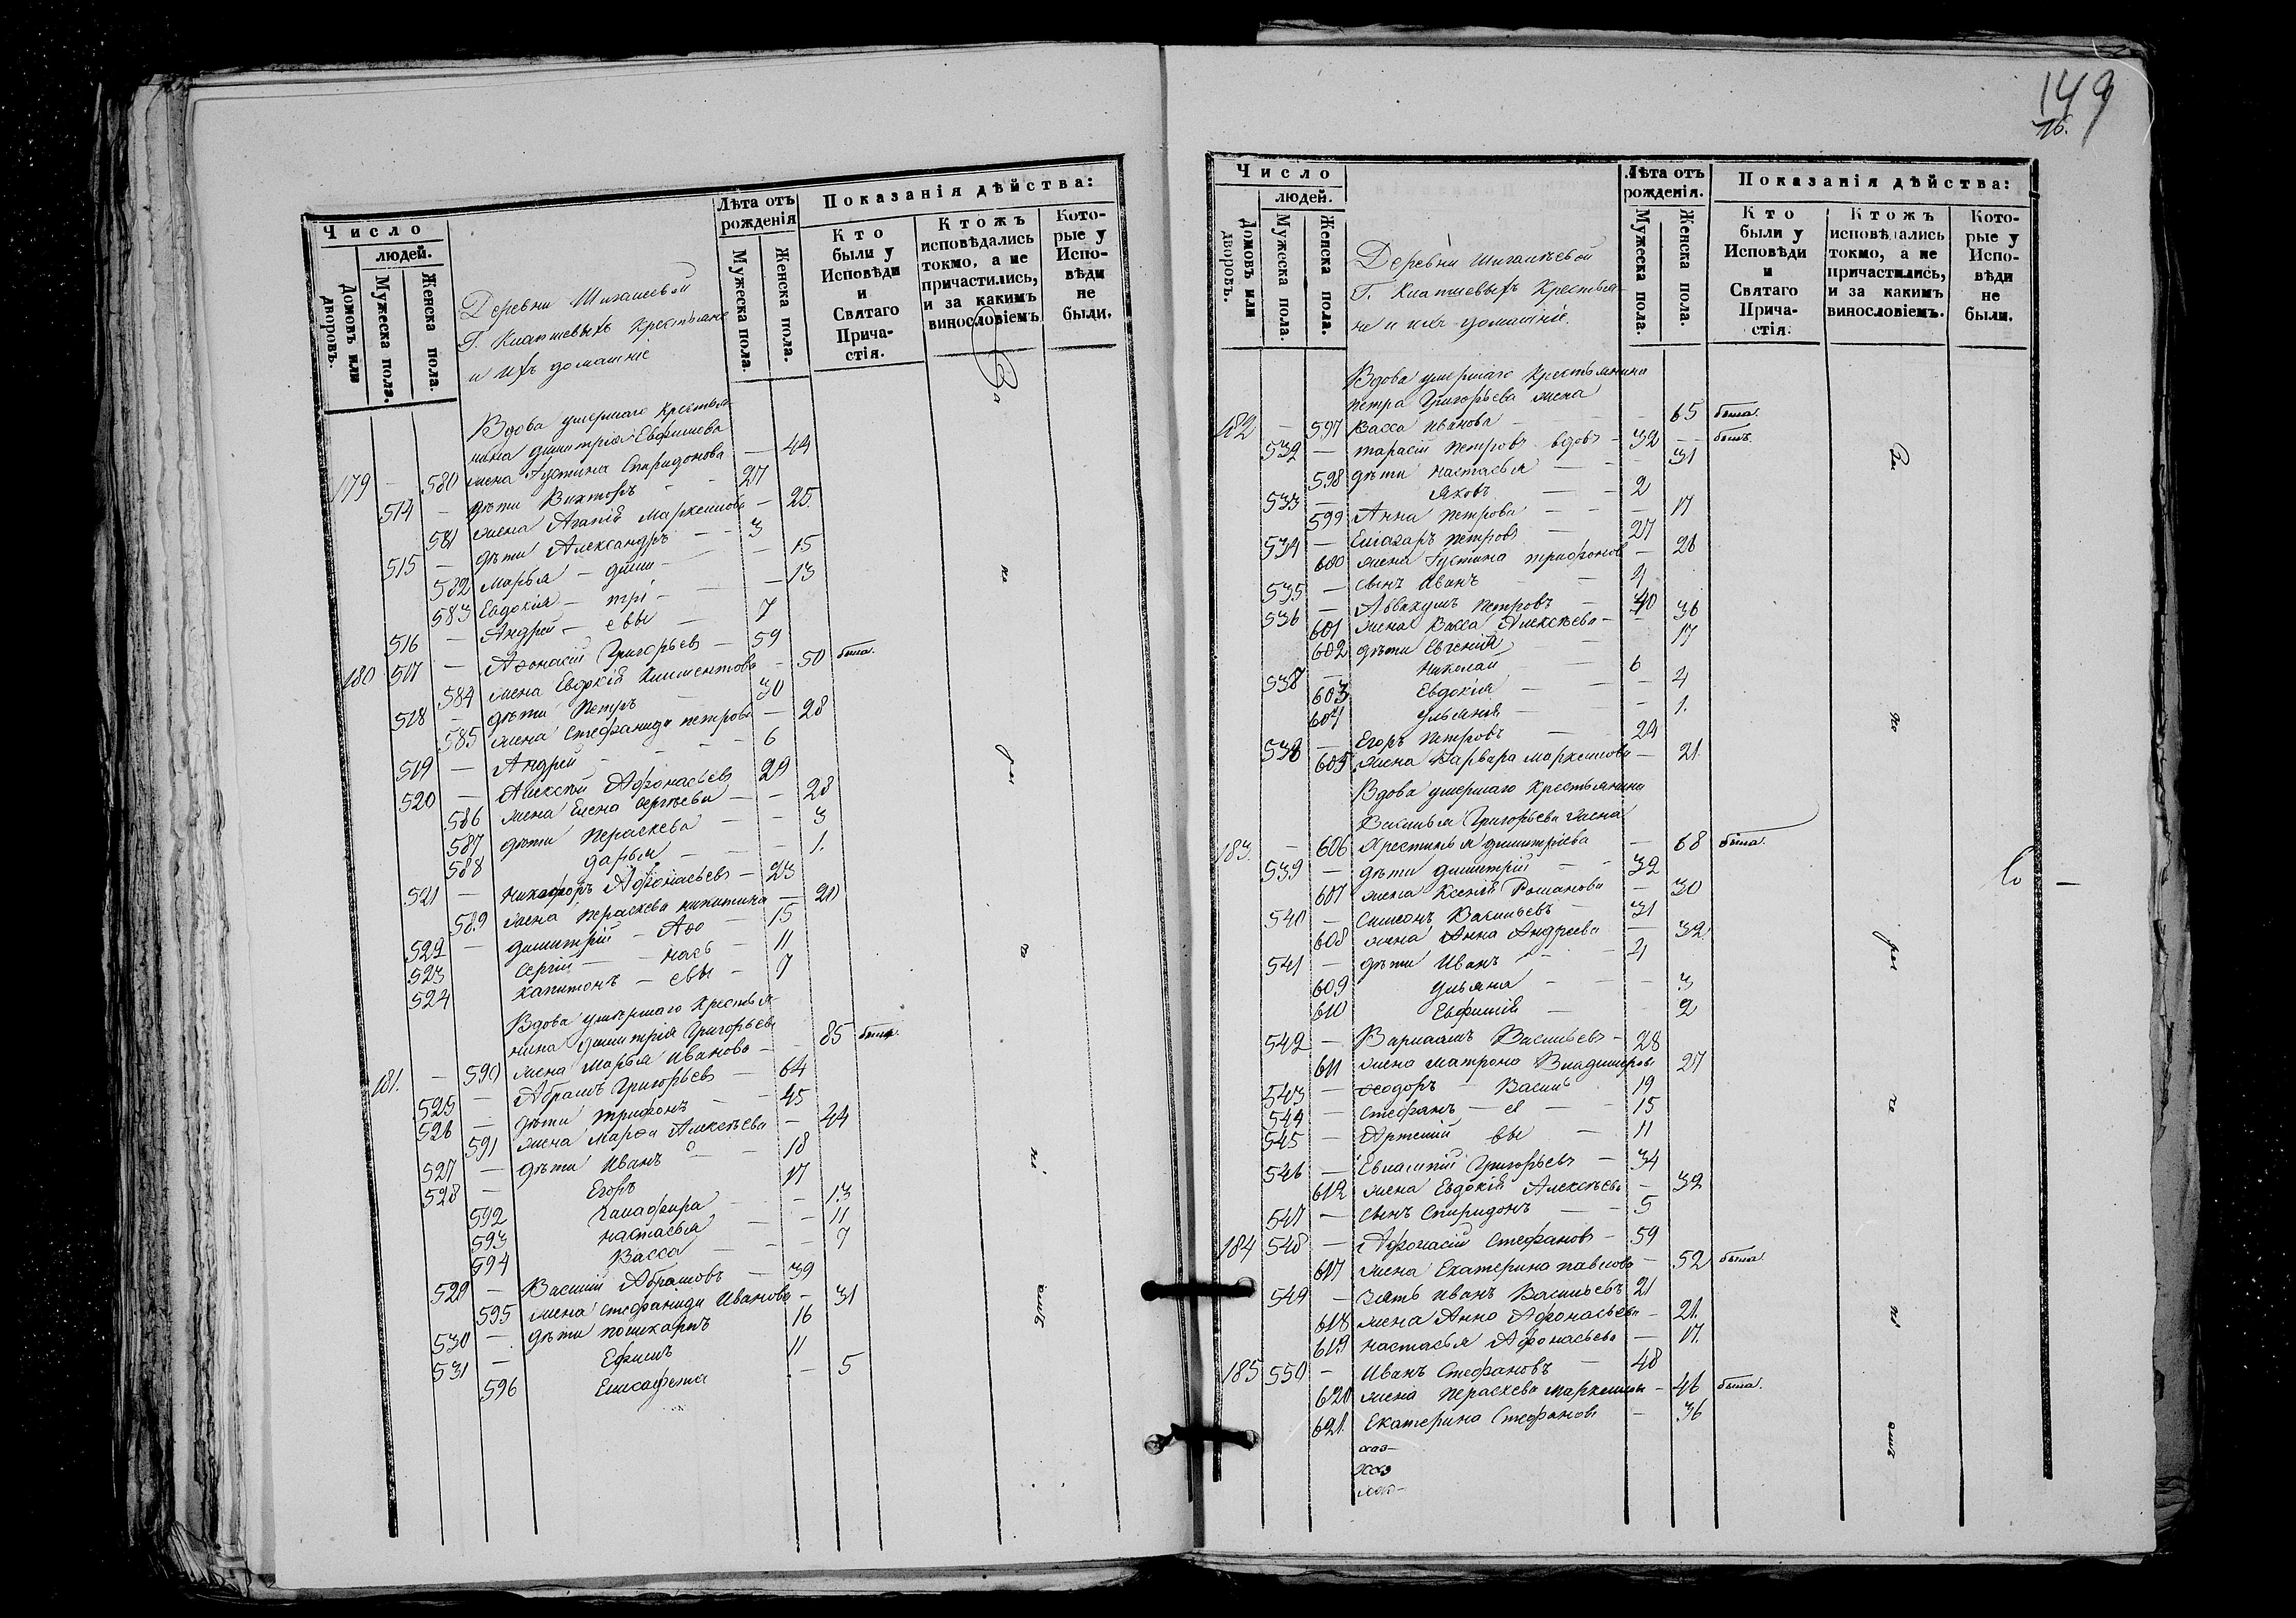 Число
людей.
Домовъ или дворовъ.
Мужеска пола.
Женска пола.
Деревни Шигалеевой
Г. Кнатшевыхъ Крестьяне
и ихъ домашніе
Лѣта отъ рожденія
Мужеска пола.
Женска пола.
Показанія дѣйства:
Кто были у Исповѣди и Святаго Прича-стія.
Ктожъ исповѣдались токмо, а не причастились, и за какимъ винословіемъ
Кото-рые у Испо-вѣди не были.
Вдова умершаго Крестья-
нина Димитрія Евфимова
179 - 580 жена Густина Спиридонова — 44
514 - дѣти Викторъ - - 27
581 жена Агапія Маркелова - 25.
515 - дѣти Александръ - - 3
582 Марья - Дими - - 15
583 Евдокія - трі - - 13
516 - Андрей - евы - 7
180 517 - Афонасій Григорьевъ - 59
584 жена Евдокія Климентова - 50 была.
518 - дѣти Петръ - 30
585 жена Стефанида Петрова - 28
519 - Андрей - - - 6
520 - Алексѣй Афонасьевъ 29
586 жена Елена Сергѣева - - 28
587 дѣти Пераскева - - 3
588 Дарья - - - 1.
521 - Никифоръ Афонасьевъ - 23
589 жена Пераскева Никитина - 20
522 - Димитрій - Афо - 15
523 Сергій - насъ - 11
524 Капитонъ - евы - 7
Вдова умершаго Крестья-
нина Димитрія Григорьева
181. - 590 жена Марья Иванова - - 85 была.
525 - Абрамъ Григорьевъ - 64
526 - дѣти Трифонъ - - 45
591 жена Марфа Алексѣева - 44
527 - дѣти Иванъ - - 18
528 - Егоръ 17
592 Галафира - - 13
593 Настасья - - 11
594 Васса - - 7
529 - Василій Абрамовъ - 39
595 жена Стефанида Иванова - 31
530 - дѣти Поликарпъ 16
531 - Ефимъ 11
596 Елисафета - 5
За
ма
ло
149
Число
людей.
Домовъ или дворовъ.
Мужеска пола.
Женска пола.
Деревни Шигалѣевой
Г. Кнатшевыхъ Крестья-
не и ихъ домашніе.
Лѣта отъ рожденія.
Мужеска пола.
Женска пола.
Показанія дѣйства:
Кто были у Исповѣди и Святаго Прича-стія.
Ктожъ исповѣдались токмо, а не причастились, и за какимъ винословіемъ.
Кото-рые у Испо-вѣди не были.
Вдова умершаго Крестьянина
Петра Григорьева жена
182 - 597 Васса Иванова - - 65 была.
532 - Тарасій Петровъ вдовъ - 32 - былъ.
598 дѣти Настасья - - 31
533 - Яковъ - - 2
599 Анна Петрова - - - 17
534 - Елиазаръ Петровъ - 27
600 жена Густина Трифонов - 26
535 - сынъ Иванъ - - 4
536 - Аввакумъ Петровъ - 40
601 жена Васса Алексѣева - - 36
602 дѣти Евгенія - 17
537 - Николай - 6
603 Евдокія - - 4
604 Ульянія - - 1.
538 - Егоръ Петровъ - 24
605 жена Варвара Маркелова - 21.
Вдова умершаго Крестьянина
Василья Григорьева жена
183. - 606 Хрестинья Димитріева - 68 была.
539 - дѣти Димитрій - - 32
607 жена Ксенія Романова - 30
540 - Симеонъ Васильевъ - 31
608 жена Анна Андреева - 32
541 - дѣти Иванъ - - 4
609 Ульяна - - - 3
610 Евфимія - 2
542 - Варлаамъ Васильевъ - 28
611 жена Матрона Владимеров 27
543 - Феодоръ - Василь 19
544 - Стефанъ - е - - 15
545 - Артемій вы - 11
546 - Евлампій Григорьевъ - 34
612 жена Евдокія Алексѣева - 32
547 - сынъ Спиридонъ - - 5
184 548 - Афонасій Стефановъ - 59
617 жена Екатерина Павлова - 52 была
549 - зять Иванъ Васильевъ 21
618 жена Анна Афонасьева - 21.
619 Настасья Афонасьева - 17.
185 550 - Иванъ Стефановъ - 48
620 жена Пераскева Маркелова - 46 была.
621. Екатерина Стефанов - 36